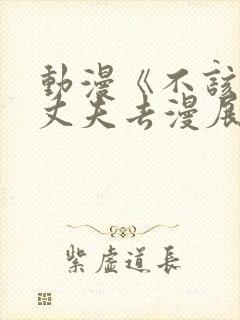 動漫《不該
丈夫去漫展
紫虛道長